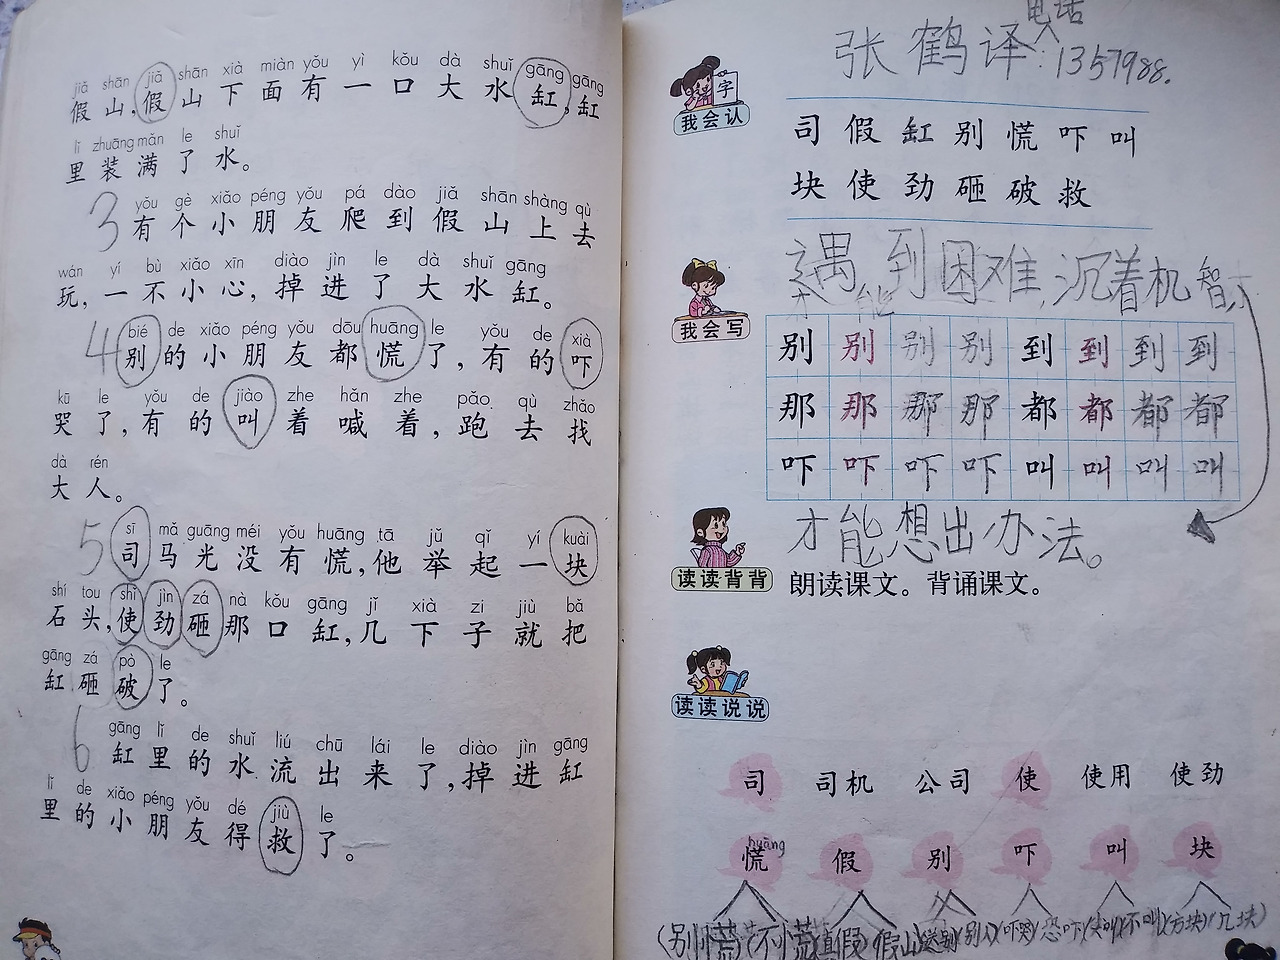 jiǎ shān jiǎ shān xià miàn yǒu yì kǒu dà shuǐ gāng gāng
假山,假山下面有一口大水缸,缸
lǐ zhuāng mǎn le shuǐ
里装满了水。
yǒu gè xiǎo péng yǒu pá dào jiǎ shān shàng qù
3 有个小朋友爬到假山上去
wán yí bù xiǎo xīn diào jìn le dà shuǐ gāng
玩,一不小心,掉进了大水缸。
bié de xiǎo péng yǒu dōu huāng le yǒu de xià
4 别的小朋友都慌了,有的吓
kū le yǒu de jiào zhe hǎn zhe pǎo qù zhǎo
哭了,有的叫着喊着,跑去找
dà rén
大人。
sī mǎ guāng méi yǒu huāng tā jǔ qǐ yí kuài
5 司马光没有慌,他举起一块
shí tou shǐ jìn zá nà kǒu gāng jǐ xià zi jiù bǎ
石头,使劲砸那口缸,几下子就把
gāng zá pò le
缸砸破了。
gāng lǐ de shuǐ liú chū lái le diào jìn gāng
6 缸里的水流出来了,掉进缸
lǐ de xiǎo péng yǒu dé jiù le
里的小朋友得救了。
电话
张鹤译:1357988.
字
我会认
司 假 缸 别 慌 吓 叫
块 使 劲 砸 破 救
遇到困难,沉着机智,
才能
我会写
别 别 别 别 到 到 到 到
那 那 那 那 都 都 都 都
吓 吓 吓 吓 叫 叫 叫 叫
才能想出办法。
读读背背
朗读课文。背诵课文。
读读说说
司 司机 公司 使 使用 使劲
huāng
慌 假 别 吓 叫 块
(别慌)(不慌)(真假)(假山)(送别)(别人)(吓哭)(恐吓)(大叫)(不叫)(方块)(几块)